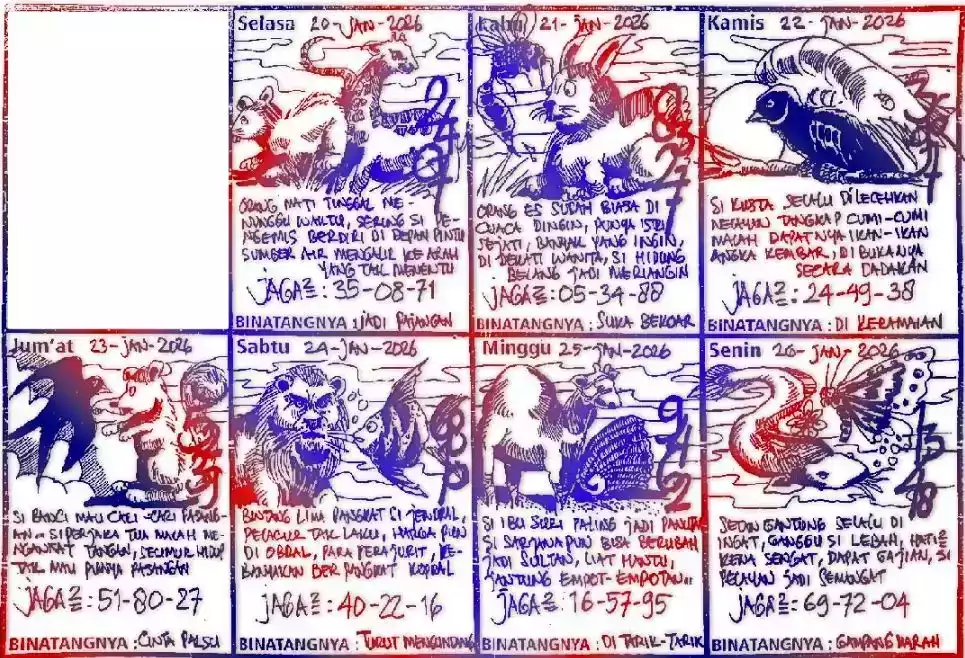 Selasa 20-JAN-2026
ORANG MATI TUNGGAL ME-
NUNGGU WAKTU, SERING SI PE-
NGEMIS BERDIRI DI DEPAN PINTU
SUMBER AIR MENGALIR KE ARAH
YANG TAK MENENTU
JAGA2 : 35-08-71
BINATANGNYA : JADI PAJANGAN
Rabu 21-JAN-2026
ORANG ES SUDAH BIASA DI
CUACA DINGIN, PUNYA ISTRI
SEJATI, BANYAK YANG INGIN,
DI DEKATI WANITA, SI HIDUNG
BELANG JADI MERIANGIN
JAGA2 : 05-34-88
BINATANGNYA : SUKA BEKOAR
Kamis 22-JAN-2026
SI KUSTA SELALU DILECEHKAN
NELAYAN TANGKAP CUMI-CUMI
MALAH DAPATNYA IKAN-IKAN
ANGKA KEMBAR, DIBUKANYA
SECARA DADAKAN
JAGA2 : 24-49-38
BINATANGNYA : DI KERAMAIAN
Jum'at 23-JAN-2026
SI BANCI MAU CARI-CARI PASANG-
AN.. SI PERJAKA TUA MALAH ME-
NGANGKAT TANGAN, SEUMUR HIDUP
TAK MAU PUNYA PASANGAN
JAGA2 : 51-80-27
BINATANGNYA : CINTA PALSU
Sabtu 24-JAN-2026
BINTANG LIMA PANGKAT SI JENDRAL,
PELACUR TAK LAKU, HARGA PUN
DI OBRAL, PARA PERAJURIT, KE-
BANYAKAN BERPANGKAT KOPRAL
JAGA2 : 40-22-16
BINATANGNYA : TURUT MENGUNDANG
Minggu 25-JAN-2026
SI IBU SURI PALING JADI PANUTAN
SI SARJANA PUN BISA BERUBAH
JADI SULTAN, LIAT HANTU,
JANTUNG EMPOT-EMPOTAN..
JAGA2 : 16-57-95
BINATANGNYA : DI TARIK-TARIK
Senin 26-JAN-2026
SEDAN GANTUNG SELALU DI
INGAT, GANGGU SI LEBAH, HATI2
KENA SENGAT, DAPAT GAJIAN, SI
PELAYAN JADI SEMANGAT
JAGA2 : 69-72-04
BINATANGNYA : GAMPANG MARAH